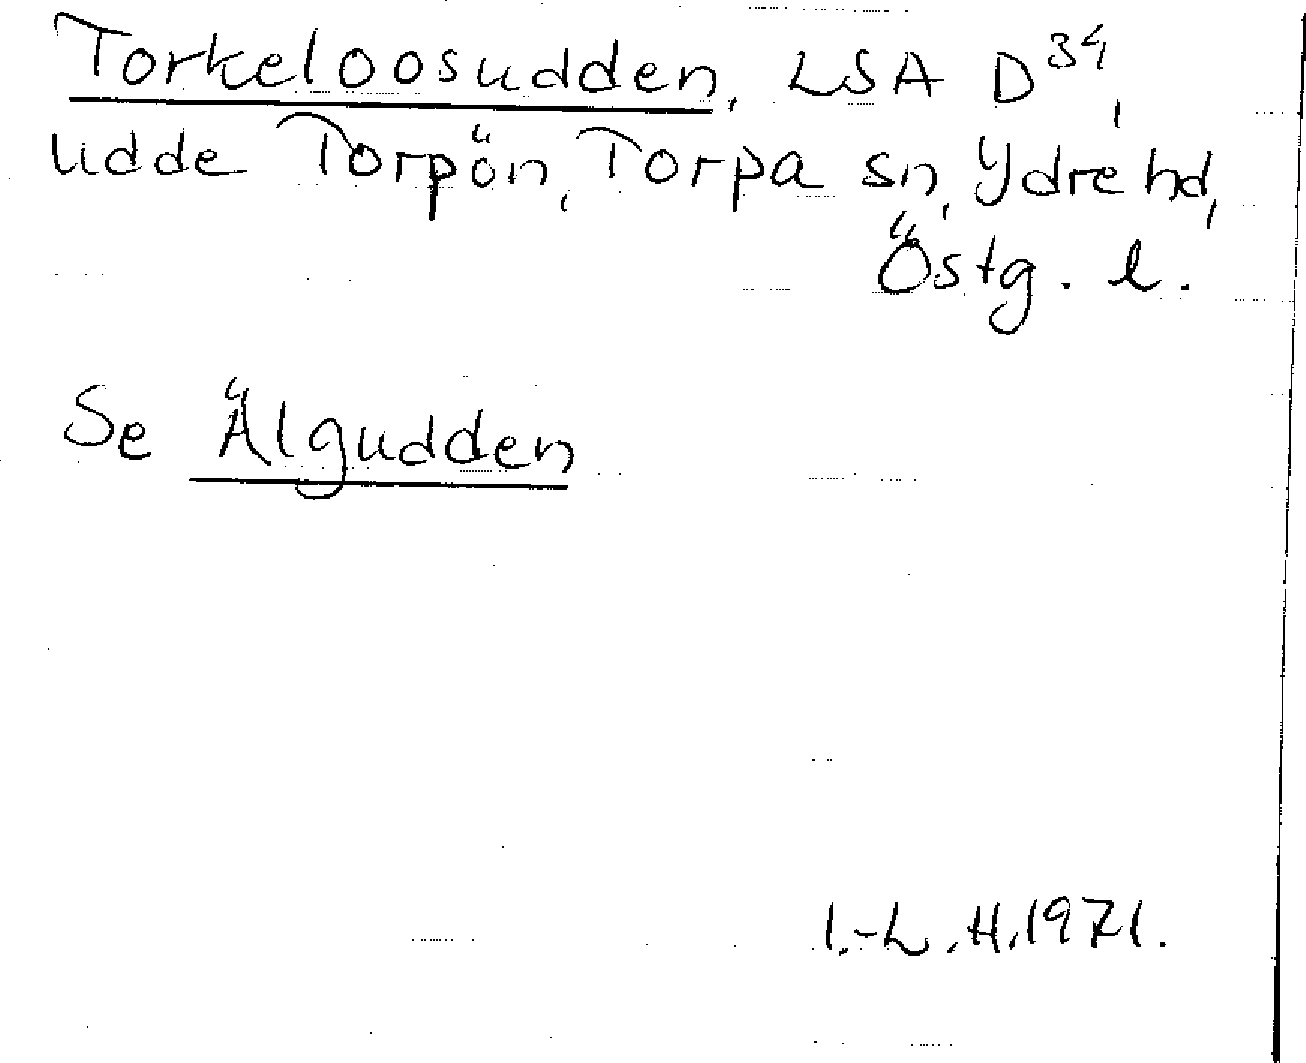 Torkeloosudden, LSA D³⁴,
udde Torpön, Torpa sn, Ydre hd,
Östg. l.
Se Älgudden
I.-L.H. 1971.